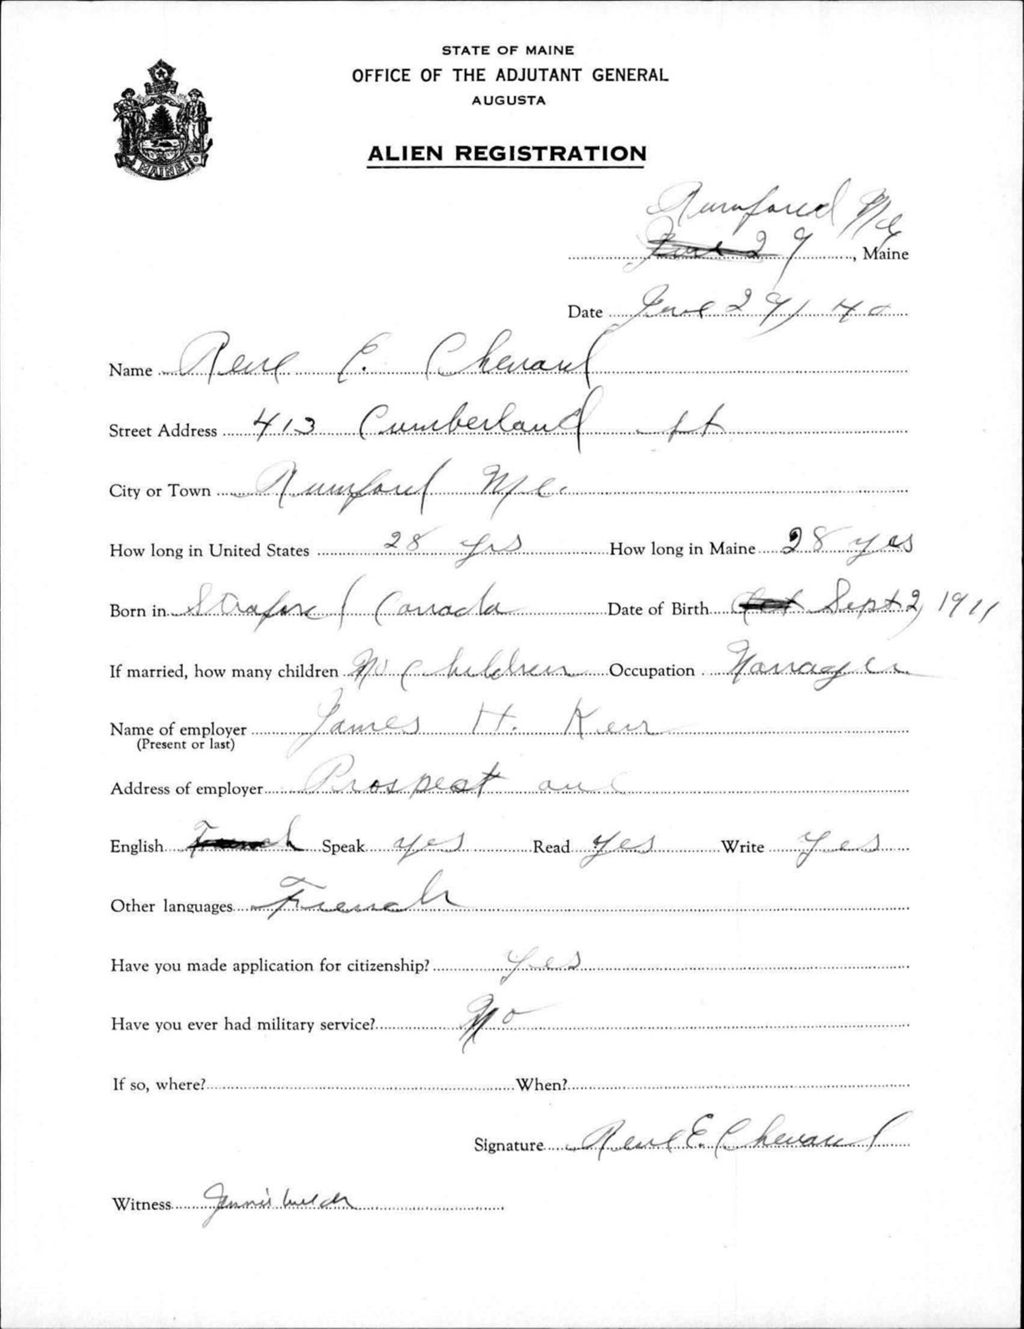 STATE OF MAINE
OFFICE OF THE ADJUTANT GENERAL
AUGUSTA
ALIEN REGISTRATION
MAINE
Rumford Me
June 29, Maine
Date June 29, 40
Name Rene E. Chenard
Street Address 413 Cumberland St
City or Town Rumford Me.
How long in United States 28 yrs How long in Maine 28 yes
Born in Straford Canada Date of Birth Oct Sept 2, 1911
If married, how many children No Children Occupation Manager
Name of employer James H. Kerr
(Present or last)
Address of employer Prospect ave
English French Speak yes Read yes Write yes
Other languages French
Have you made application for citizenship? yes
Have you ever had military service? No
If so, where? When?
Signature Rene E. Chenard
Witness